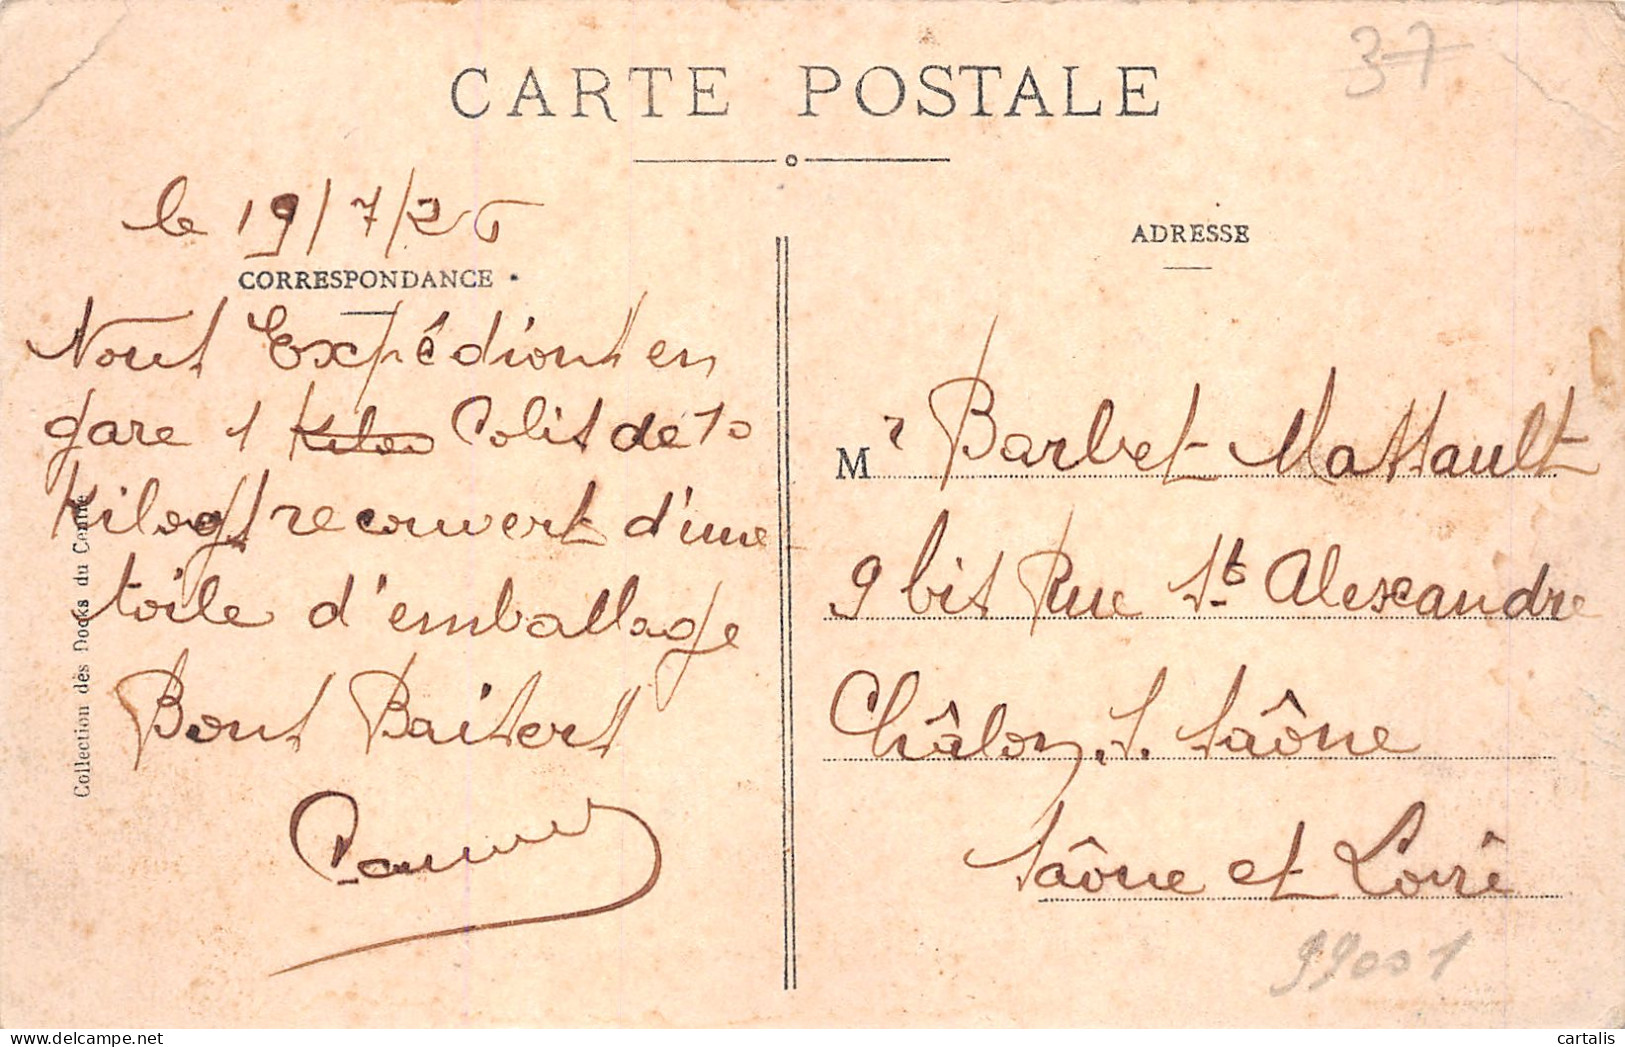 37
CARTE POSTALE
le 19/7/26
CORRESPONDANCE
Nous Expédions en
gare 1 Kilos Colis de 10
Kilogs recouvert d'une
toile d'emballage
Bons Baisers
Collection des Docks du Centre
ADRESSE
Mr Barbet-Massault
9 bis Rue St Alexandre
Châlon. s. Saône
Saône et Loire
99001
cartalis